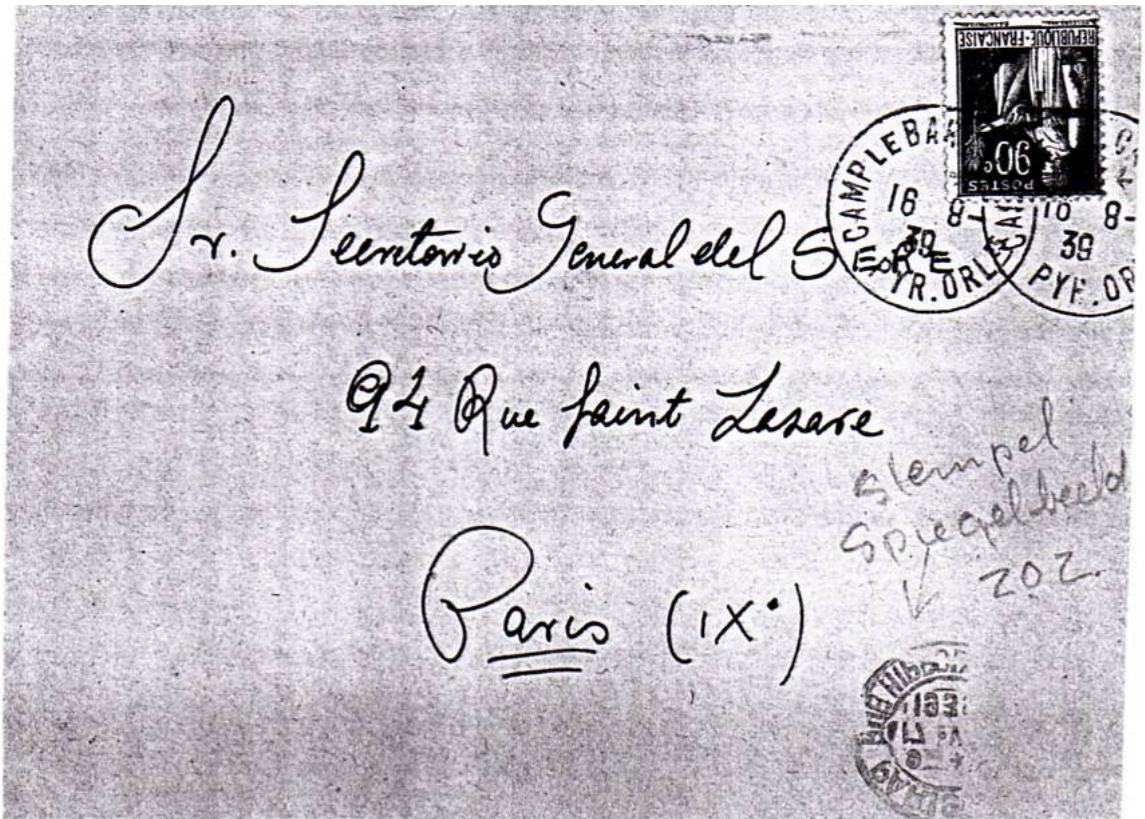 REPUBLIQUE-FRANÇAISE
90c
POSTES
CAMPLEBA
16 8-
39
PYR. ORLES
16 8-
39
PYR. OR
Sr. Secretario General del S E R E
94 Rue Saint Lazare
Paris (IX°)
stempel
Spiegelbeeld
202.
PARIS